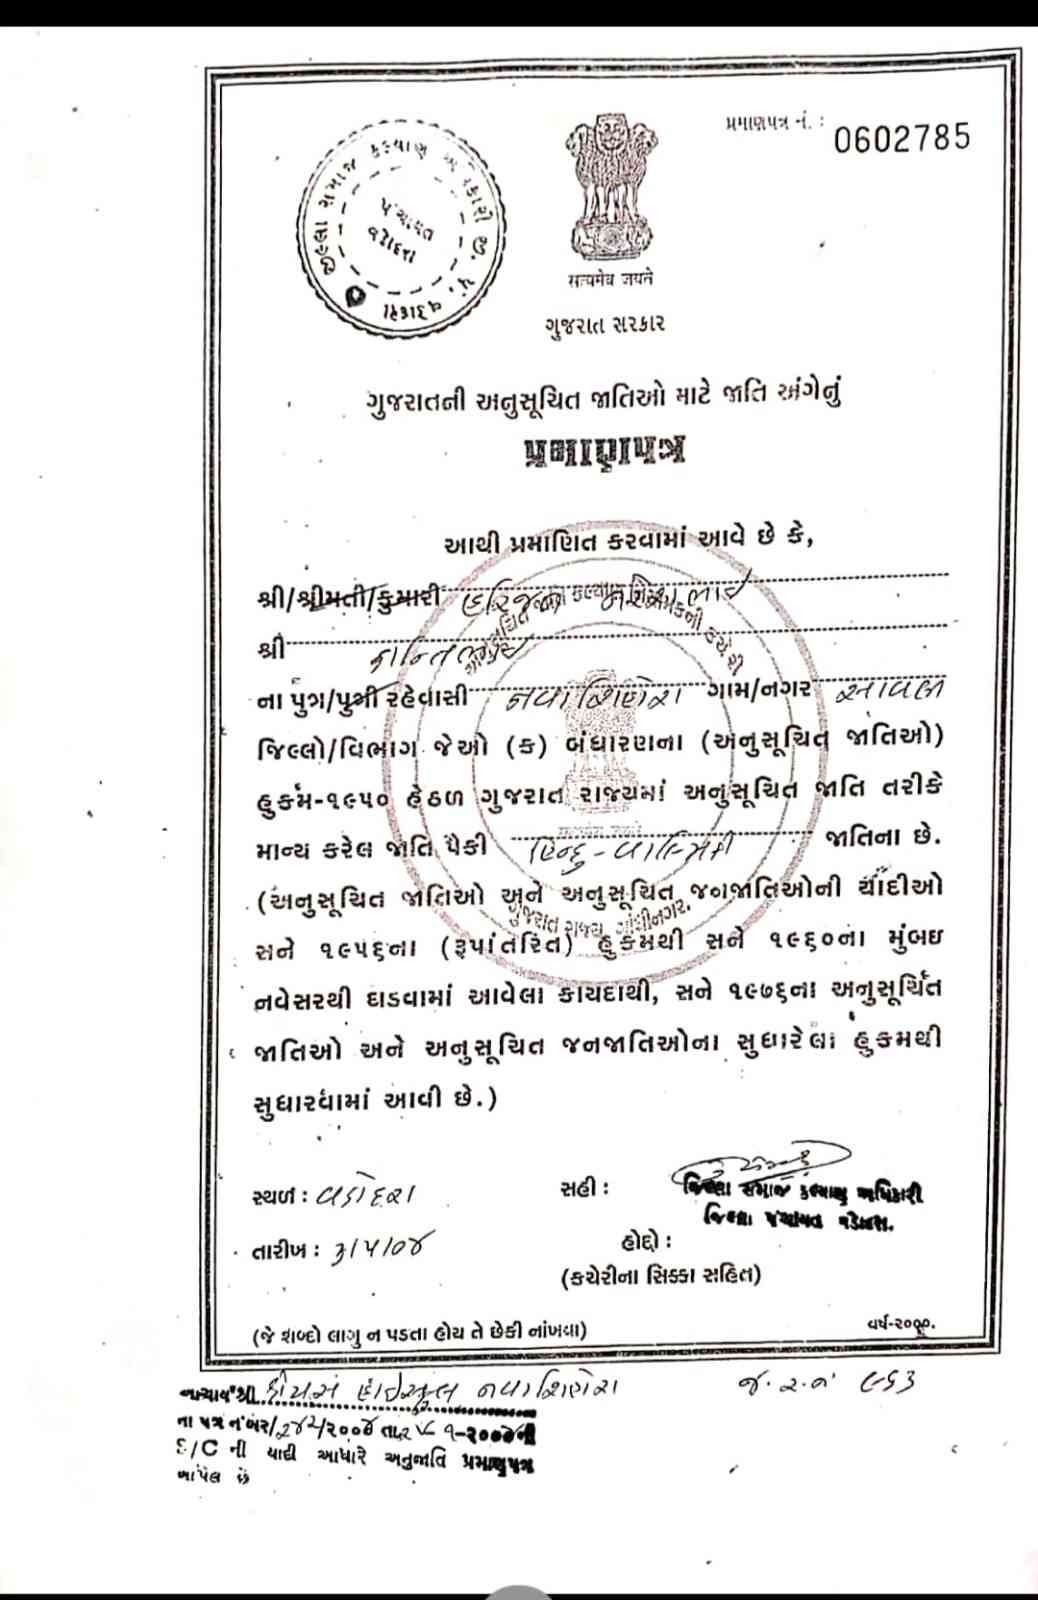 જીલ્લા સમાજ કલ્યાણ અધિકારી જી. પં. વડોદરા
પંચાયત
વડોદરા
પ્રમાણપત્ર નં. :
0602785
सत्यमेव जयते
ગુજરાત સરકાર
ગુજરાતની અનુસૂચિત જાતિઓ માટે જાતિ અંગેનું
પ્રમાણપત્ર
આથી પ્રમાણિત કરવામાં આવે છે કે,
શ્રી/શ્રીમતી/કુમારી હરિજન ભાઈ
શ્રી કાન્તિભાઈ
ના પુત્ર/પુત્રી રહેવાસી નવાશિહોરા ગામ/નગર સાવલી
જિલ્લો/વિભાગ જેઓ (ક) બંધારણના (અનુસૂચિત જાતિઓ)
હુકમ-૧૯૫૦ હેઠળ ગુજરાત રાજ્યમાં અનુસૂચિત જાતિ તરીકે
માન્ય કરેલ જાતિ પૈકી હિન્દુ-વાલ્મિકી જાતિના છે.
(અનુસૂચિત જાતિઓ અને અનુસૂચિત જનજાતિઓની યાદીઓ
સને ૧૯૫૬ના (રૂપાંતરિત) હુકમથી સને ૧૯૬૦ના મુંબઇ
નવેસરથી ઘડવામાં આવેલા કાયદાથી, સને ૧૯૭૬ના અનુસૂચિત
જાતિઓ અને અનુસૂચિત જનજાતિઓના સુધારેલા હુકમથી
સુધારવામાં આવી છે.)
ગુજરાત રાજ્ય, ગાંધીનગર.
સ્થળ : વડોદરા
સહી :
જિલ્લા સમાજ કલ્યાણ અધિકારી
જિલ્લા પંચાયત વડોદરા.
તારીખ : ૩/૫/૦૪
હોદ્દો :
(કચેરીના સિક્કા સહિત)
(જે શબ્દો લાગુ ન પડતા હોય તે છેકી નાંખવા)
વર્ષ-૨૦૦૦.
આચાર્યશ્રી હાઈસ્કુલ નવાશિહોરા
જ. ર. નં ૬૬૩
ના પત્ર નંબર
L/C ની યાદી આધારે અનુજાતિ પ્રમાણપત્ર
આપેલ છે